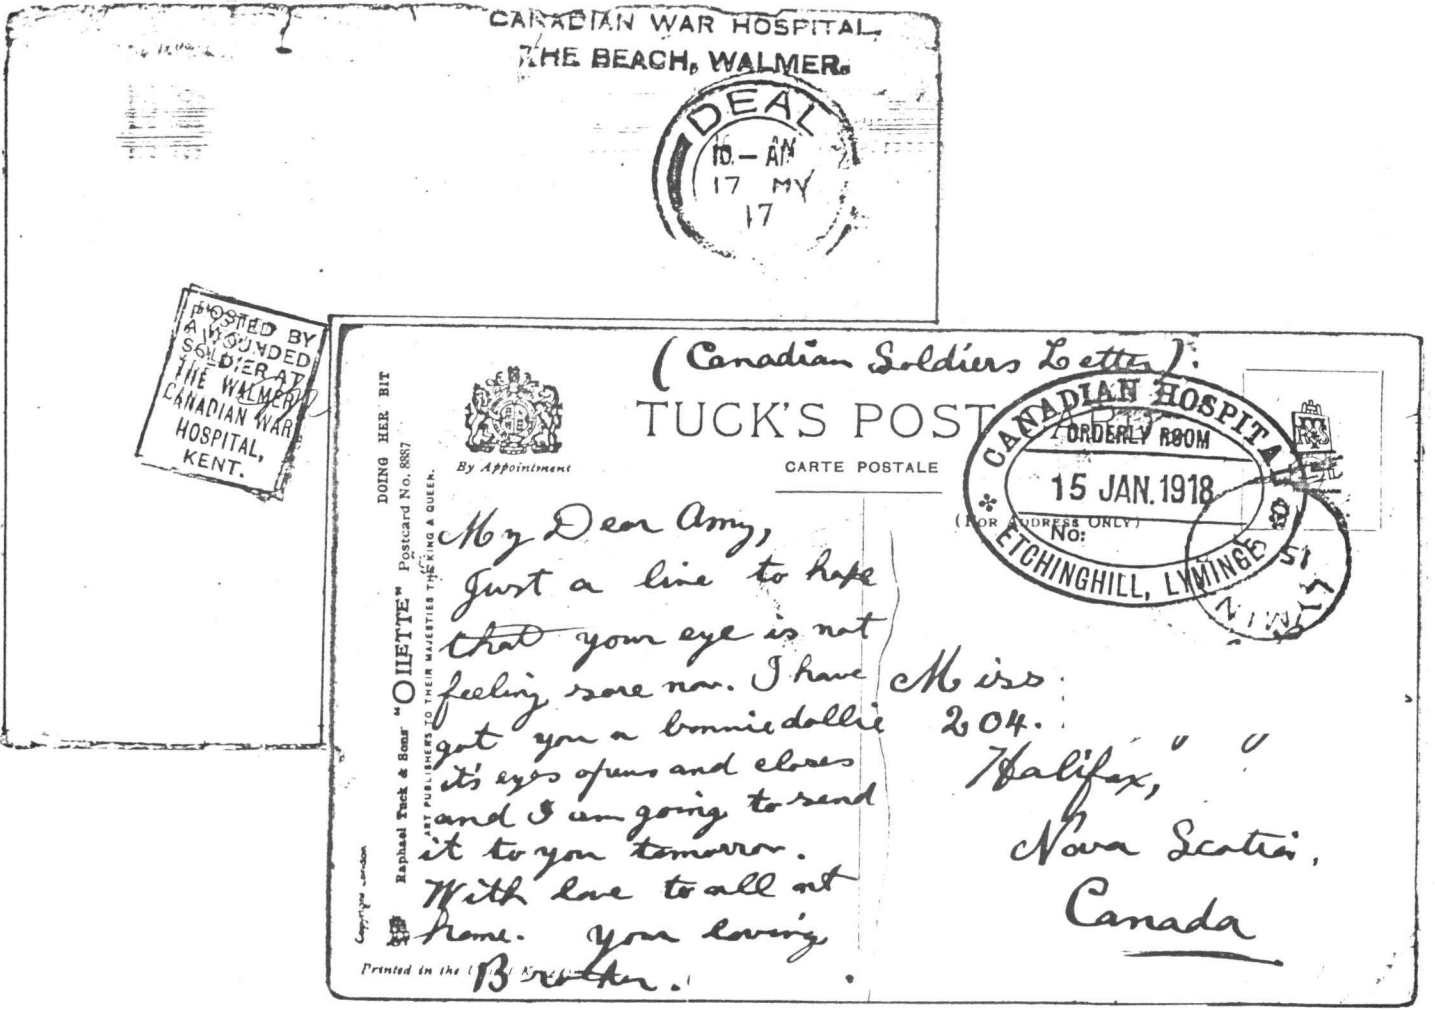 CANADIAN WAR HOSPITAL,
THE BEACH, WALMER.
DEAL
10 — AM
17 MY
17
POSTED BY
A WOUNDED
SOLDIER AT
THE WALMER
CANADIAN WAR
HOSPITAL,
KENT.
(Canadian Soldiers Letter).
TUCK'S POST CARD
CARTE POSTALE
(FOR ADDRESS ONLY)
By Appointment
CANADIAN HOSPITAL
ORDERLY ROOM
15 JAN. 1918
No:
ETCHINGHILL, LYMINGE
LYMIN
15
DOING HER BIT
Raphael Tuck & Sons' "OILETTE" Postcard No. 8887
ART PUBLISHERS TO THEIR MAJESTIES THE KING & QUEEN.
Copyright London
My Dear Amy,
Just a line to hope
that your eye is not
feeling sore now. I have
got you a bonnie dollie
it's eyes opens and closes
and I am going to send
it to you tomorrow.
With love to all at
home. Your loving
Brother.
Printed in the
Miss
204. " "
Halifax,
Nova Scotia,
Canada